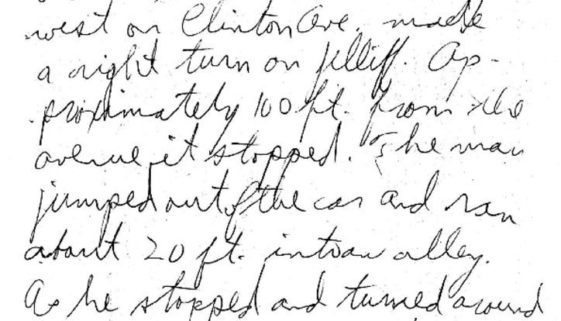 west on Clinton Ave. made
a right turn on Jelliff. Ap-
proximately 100 ft. from the
avenue it stopped. The man
jumped out of the car and ran
about 20 ft. into an alley.
As he stopped and turned around